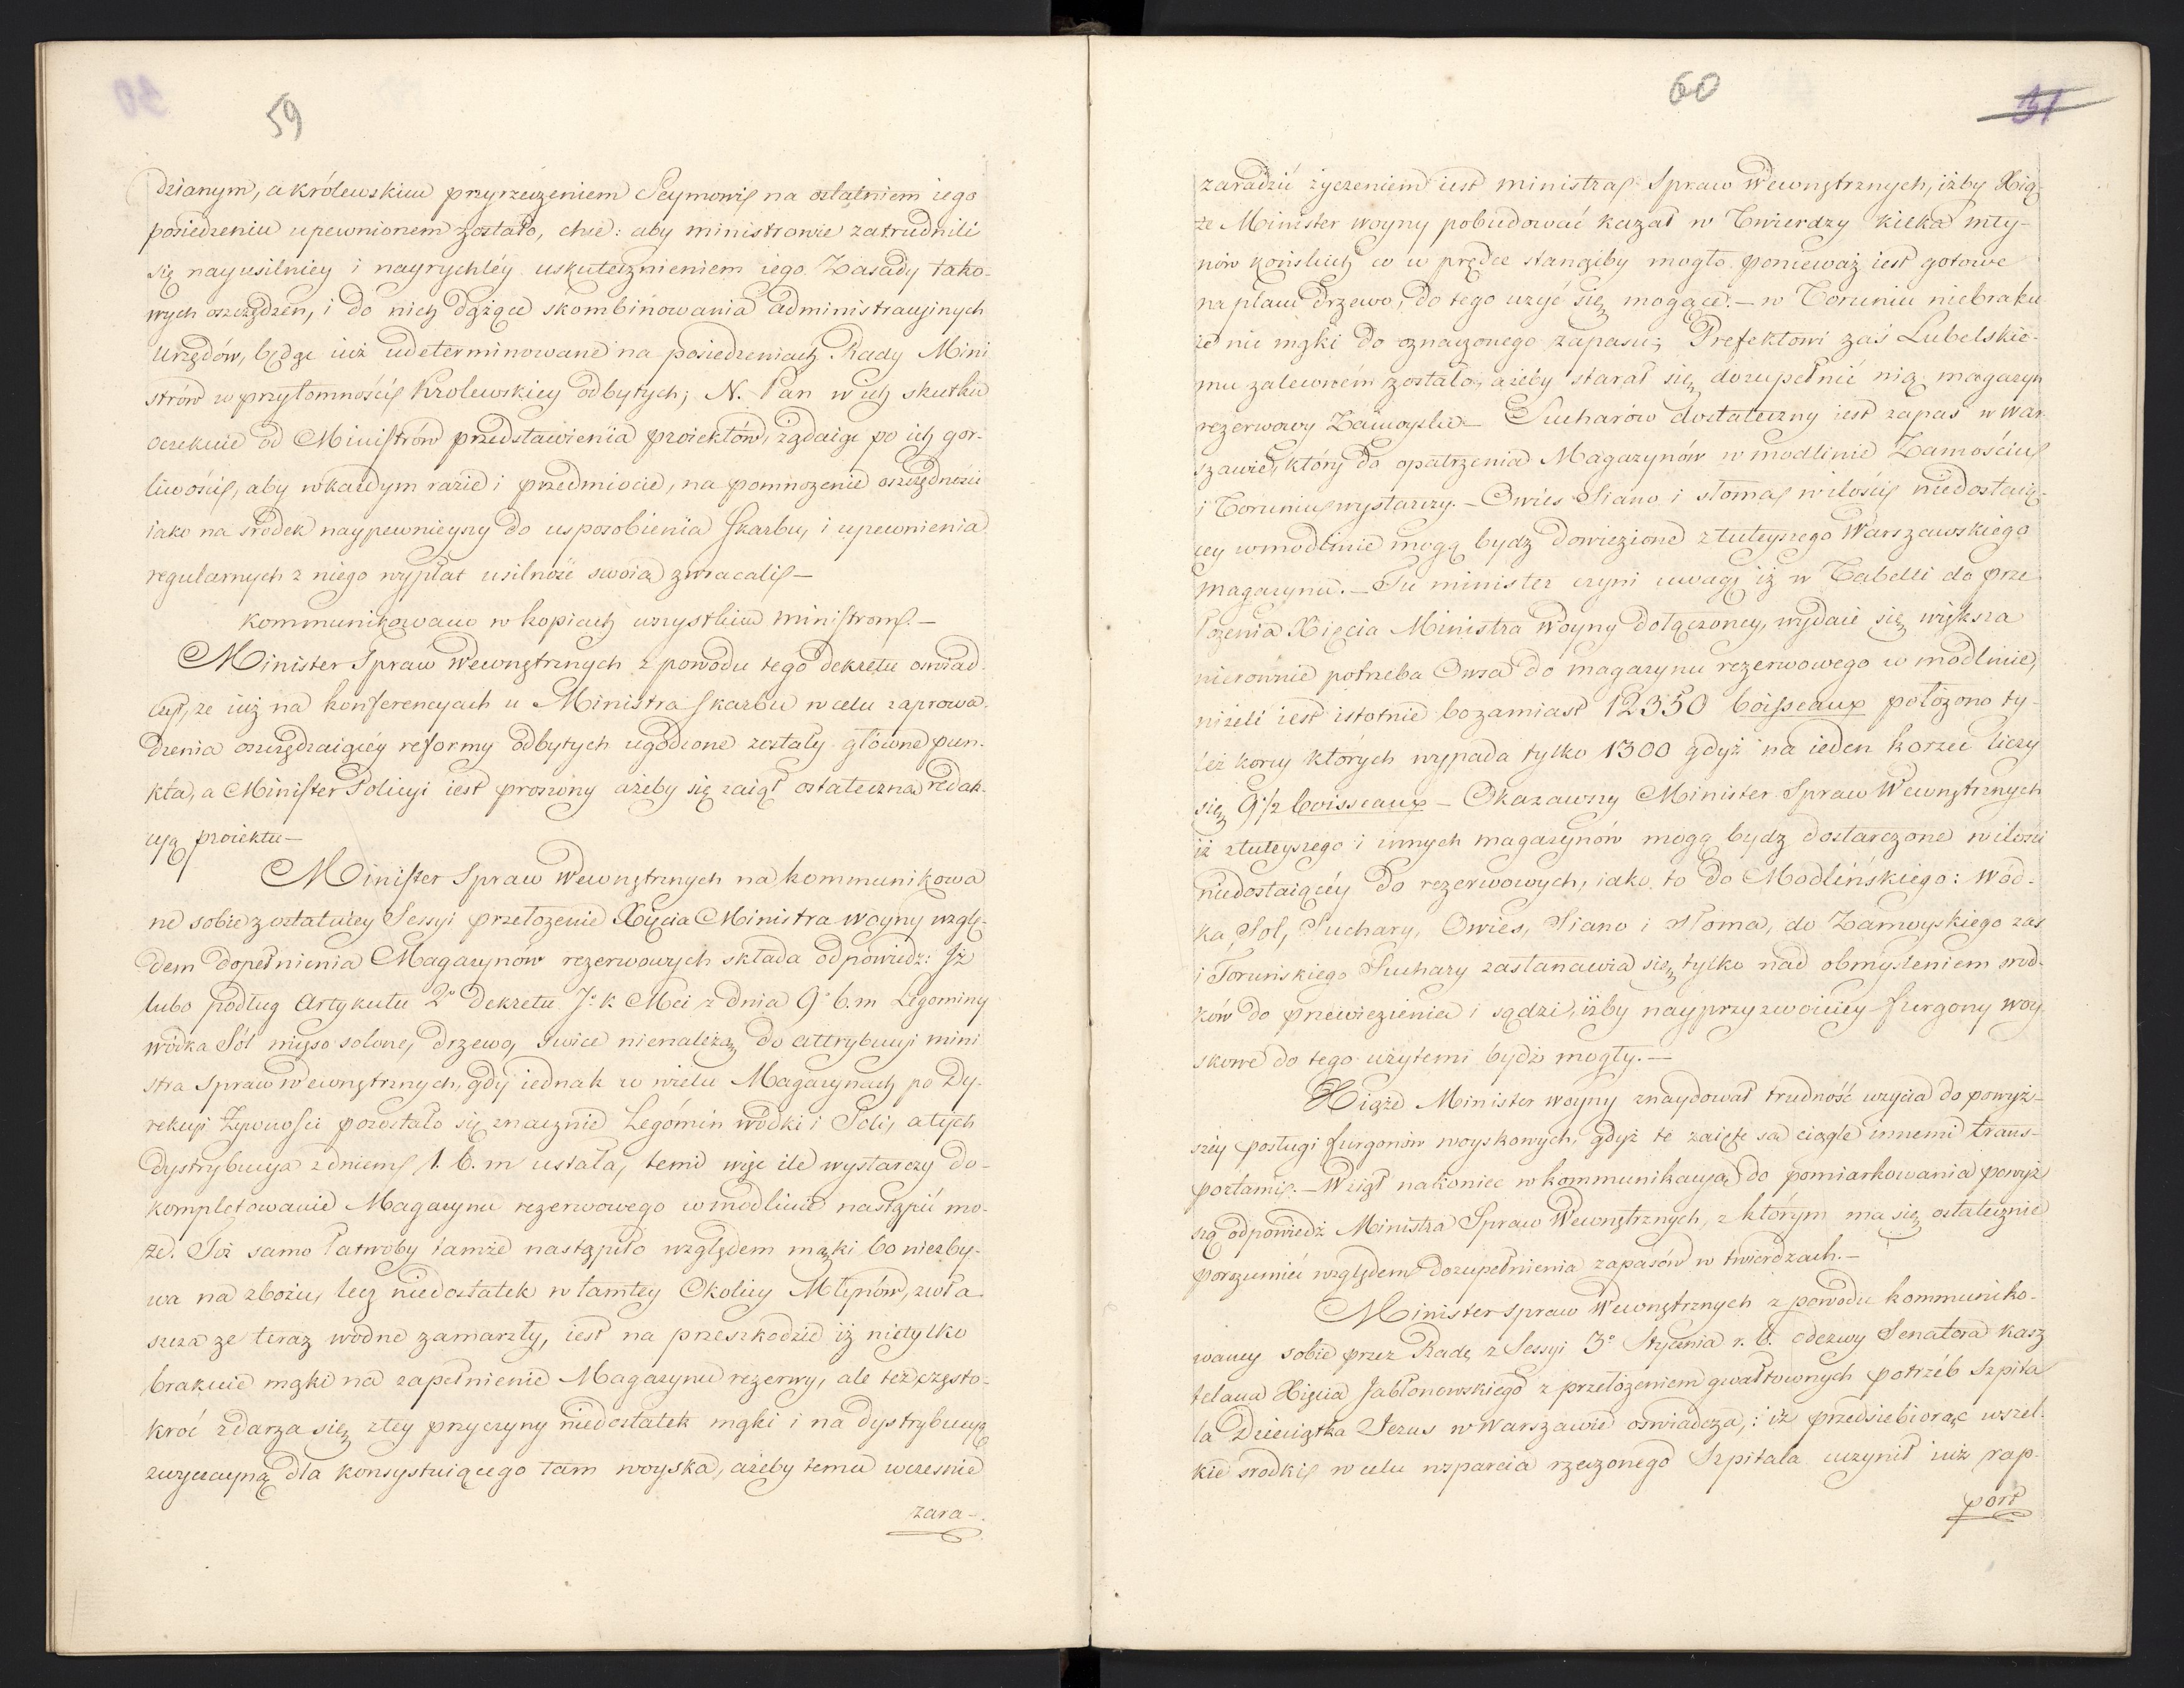 59
dzianym, a królewskiem przyrzeczeniem Seymowi na ostatniem iego
posiedzeniu upewnionem zostało, chce: aby ministrowie zatrudnili
się nayusilniey i nayrychléy uskutecznieniem iego. Zasady tako-
wych oszczędzeń, i do nich dążące skombinowania administracyinych
Urzędów, będąc iuż udeterminowane na posiedzeniach Rady Mini
strów w przytomności Krolewskiey odbytych; N. Pan w ich skutku
oczekuie od Ministrów przedstawienia proiektów, żądaiąc po ich gor-
liwości, aby w każdym razie i przedmiocie, na pomnożenie oszczędności
iako na srodek naypewnieyszy do usposobienia skarbu, i upewnienia
regularnych z niego wypłat usilność swoia zwracali —
kommunikowano w kopiach wszystkim ministrom. —
Minister Spraw Wewnętrznych z powodu tego dekretu oswiad-
czył, ze iuż na konferencyach u Ministra skarbu w celu zaprowa-
dzenia oszczędzaiącéy reformy odbytych ugodzone zostały główne pun-
kta, a Minister Policyi iest proszony ażeby się zaiął ostateczną redak-
cyą proiektu —
Minister Spraw Wewnętrznych na kommunikowa
ne sobie z ostatniey Sessyi przełozenie Xięcia Ministra woyny wzglę-
dem dopełnienia Magazynów rezerwowych składa odpowiedz: Jż
lubo podług Artykułu 2° Dekretu J: K Mci z dnia 9° b. m Legominy
wódka Sól mięso solone, drzewo, swiece nienależą do attrybucyi mini
stra Spraw Wewnętrznych, gdy iednak w wielu Magazynach po Dy-
rekcyi Żywności pozostało się znacznie Legómin wódki i Soli, a tych
dystrybucya z dniem 1. b. m ustała, temi więc ile wystarczy do-
kompletowanie Magazynu rezerwowego w modlinie nastąpić mo-
że. Toż samo łatwoby tamże nastąpiło względem mąki bo niezby-
wa na zbożu, lecz niedostatek w tamtey Okolicy Młynów, zwła
szcza ze teraz wodne zamarzły, iest na przeszkodzie iż nietylko
brakuie mąki na zapełnienie Magazynu rezerwy, ale też często-
kroć zdarza się z tey przyczyny niedostatek mąki i na dystrybucyą
zwyczayną dla konsystuiącego tam woyska, ażeby temu wczesnie
zara-
60
31
zaradzić życzeniem iest ministra Spraw Wewnętrznych, iżby Xią-
że Minister woyny pobudować kazał w Twierdzy kilka mły-
nów końskich co w prędce stanąćby mogło ponieważ iest gotowe
na placu drzewo, do tego uzyć się mogące. — w Toruniu niebraku
ie nic mąki do oznaczonego zapasu; Prefektowi zaś Lubelskie-
mu zaleconém zostało, ażeby starał się dozupełnić nią magazyn
rezerwowy Zamoyski. — Sucharów dostateczny iest zapas w War-
szawie, który do opatrzenia Magazynów w modlinie Zamościu
i Toruniu wystarczy. — Owies Siano i słoma w ilości niedostaią-
cey w modlinie mogą bydz dowiezione z tuteyszego Warszawskiego
magazynu. — Tu minister czyni uwagę iż w Tabelli do prze
łożenia Xięcia Ministra Woyny dołączoney, wydaie się większa
nierównie potrzeba Owsa do magazynu rezerwowego w modlinie,
niżeli iest istotnie bo zamiast 12350 boisseaux położono ty-
leż korcy których wypada tylko 1300 gdyż na ieden korzec liczy
się 9 1/2 boisseaux — Okazawszy Minister Spraw Wewnętrznych
iż z tuteyszego i innych magazynów mogą bydz dostarczone w ilości
niedostaiącéy do rezerwowych, iako to do Modlińskiego: Wód-
ka, Sol, Suchary, Owies, Siano i Słoma, do Zamoyskiego zas
i Toruńskiego Suchary zastanawia się tylko nad obmysleniem srod-
ków do przewiezienia i sądzi, iżby nayprzyzwoiciey furgony woy
skowe do tego użytemi bydź mogły. —
Xiąże Minister woyny znaydował trudność uzycia do powyż-
széy posługi furgonów woyskowych, gdyż te zaięte są ciągle innemi trans-
portami. — Wziął nakoniec w kommunikacyą do pomiarkowania powyż
szą odpowiedź Ministra Spraw Wewnętrznych, z którym ma się ostatecznie
porozumieć względem dozupełnienia zapasów w twierdzach. —
Minister spraw Wewnętrznych z powodu kommuniko-
waney sobie przez Radę z Sessyi 3° Stycznia r. b. odezwy Senatora kasz
telana Xięcia Jabłonowskiego z przełożeniem gwałtownych potrzéb Szpita
la Dzieciątka Jezus w Warszawie oswiadcza, iż przedsiebiorąc wszel-
kie srodki w celu wsparcia rzeczonego Szpitala uczynił iuż rap-
port